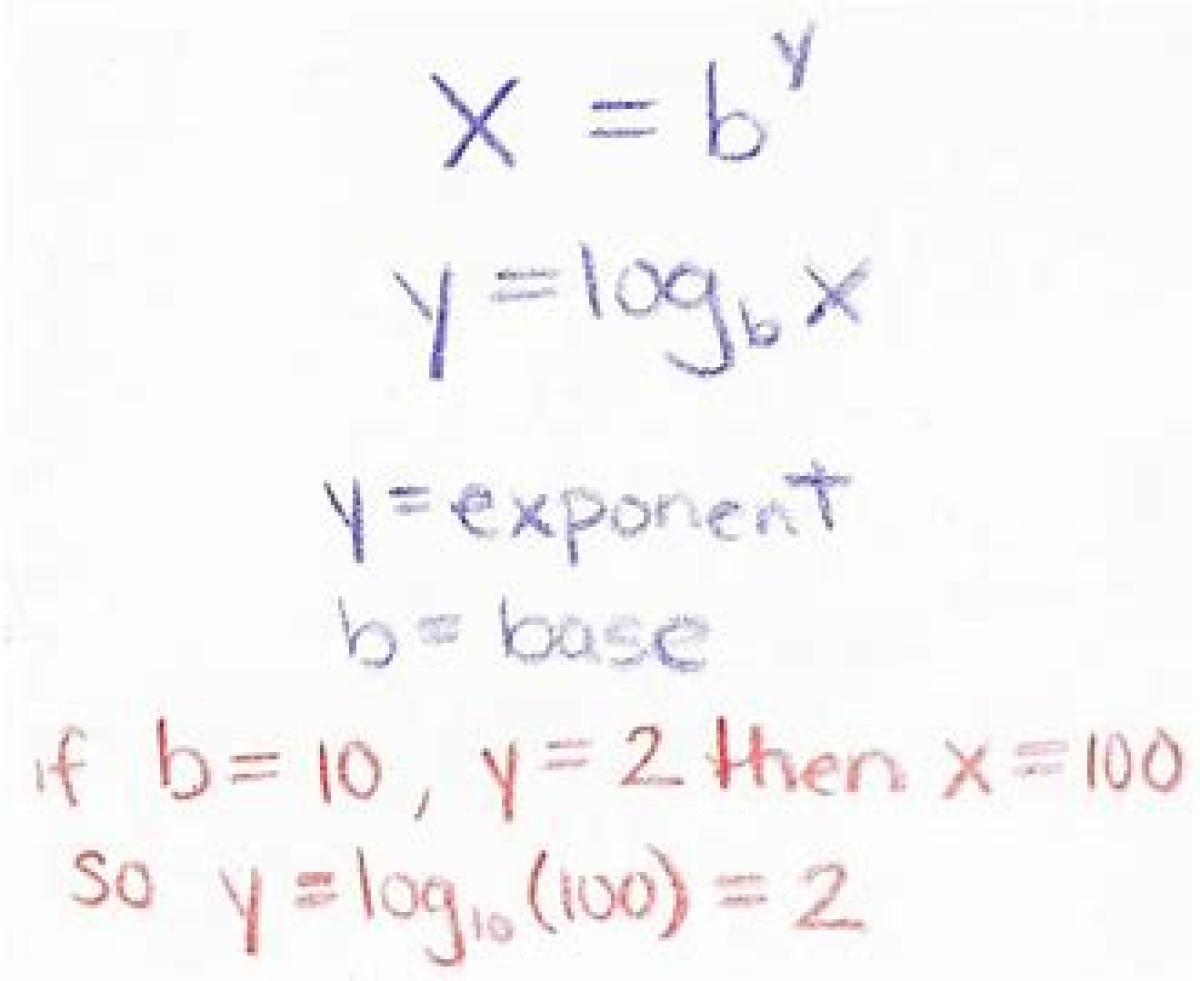 x = b^y
y = log_b x
y = exponent
b = base
if b = 10, y = 2 then x = 100
so y = log_10 (100) = 2